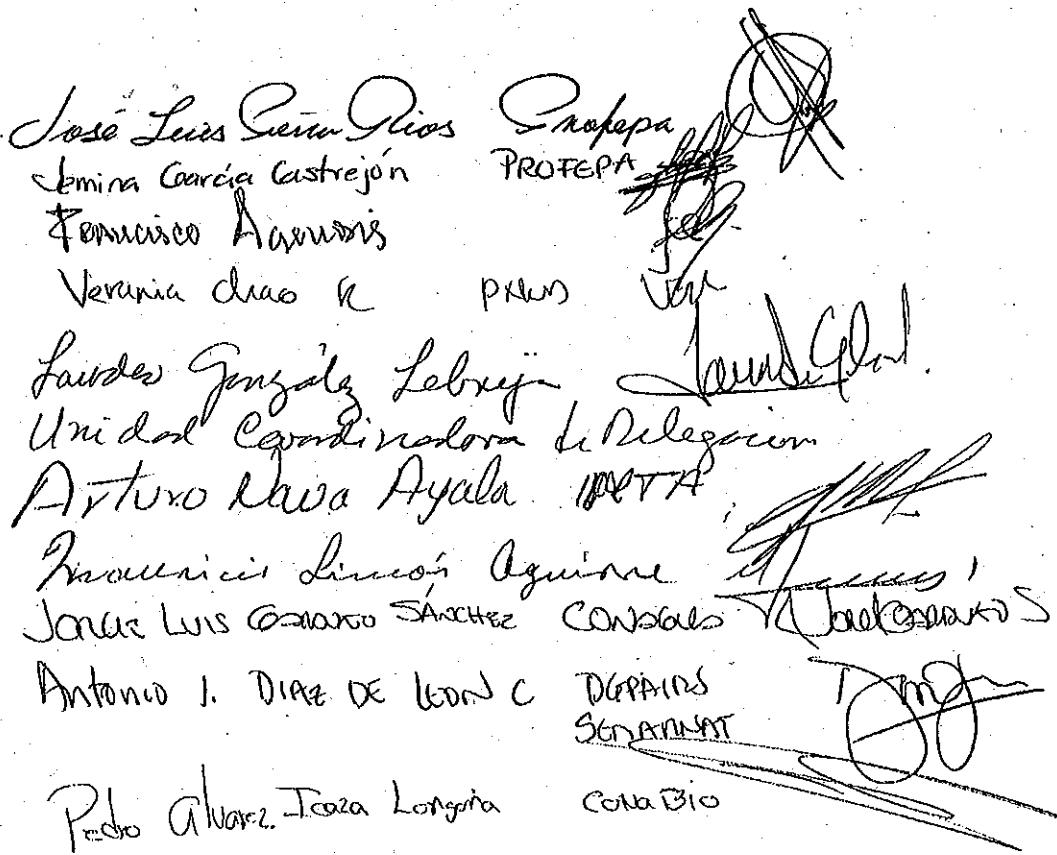 José Luis Ríos Profepa
Jemina García Castrejón PROFEPA
Francisco
Verania Chao R PNUD
Lourdes González Lebrija
Unidad Coordinadora de Delegacion
Arturo Nava Ayala
Mauricio Limón Aguirre
JORGE LUIS SÁNCHEZ
Antonio I. DIAZ DE LEON C DGPAIRS
SEMARNAT
Pedro Alvarez-Icaza Longoria CONABIO